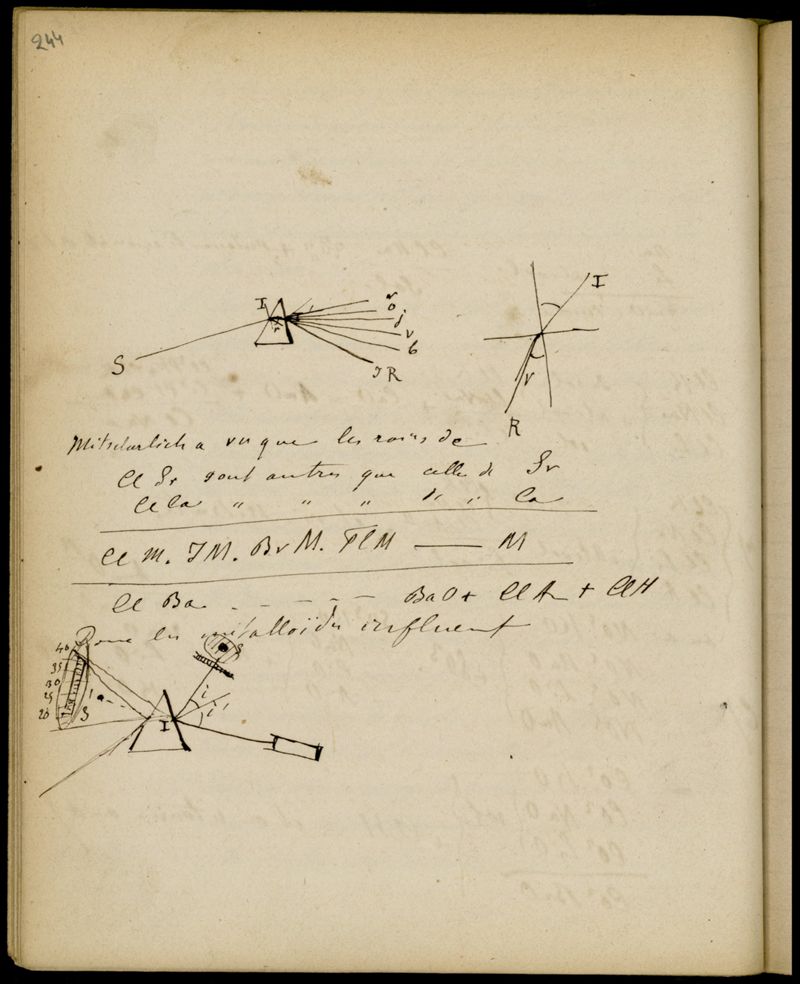 244
I
r
o
j
v
b
S
I R
I
r
R
Mitscherlich a vu que les raies de
Cl Sr sont autres que celle de Sr
Cl Ca " " " " " Ca
Cl M. I M. Br M. Fl M —— M
Cl Ba - - - - - BaO + Cl + Cl H
Donc les métalloïdes influent
40
35
30
25
20
S
i
i'
I